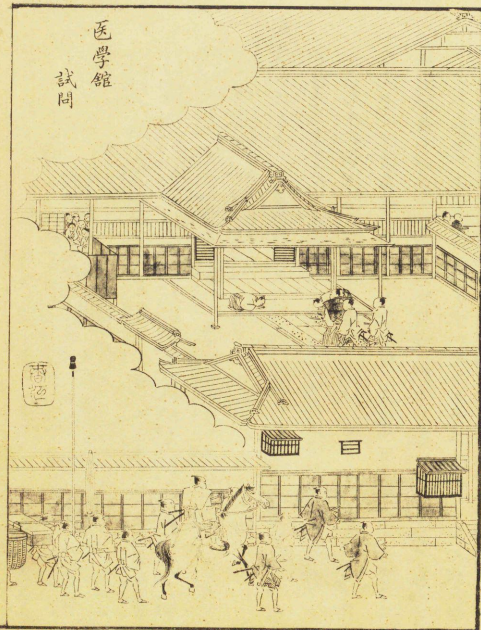 医學館
試問